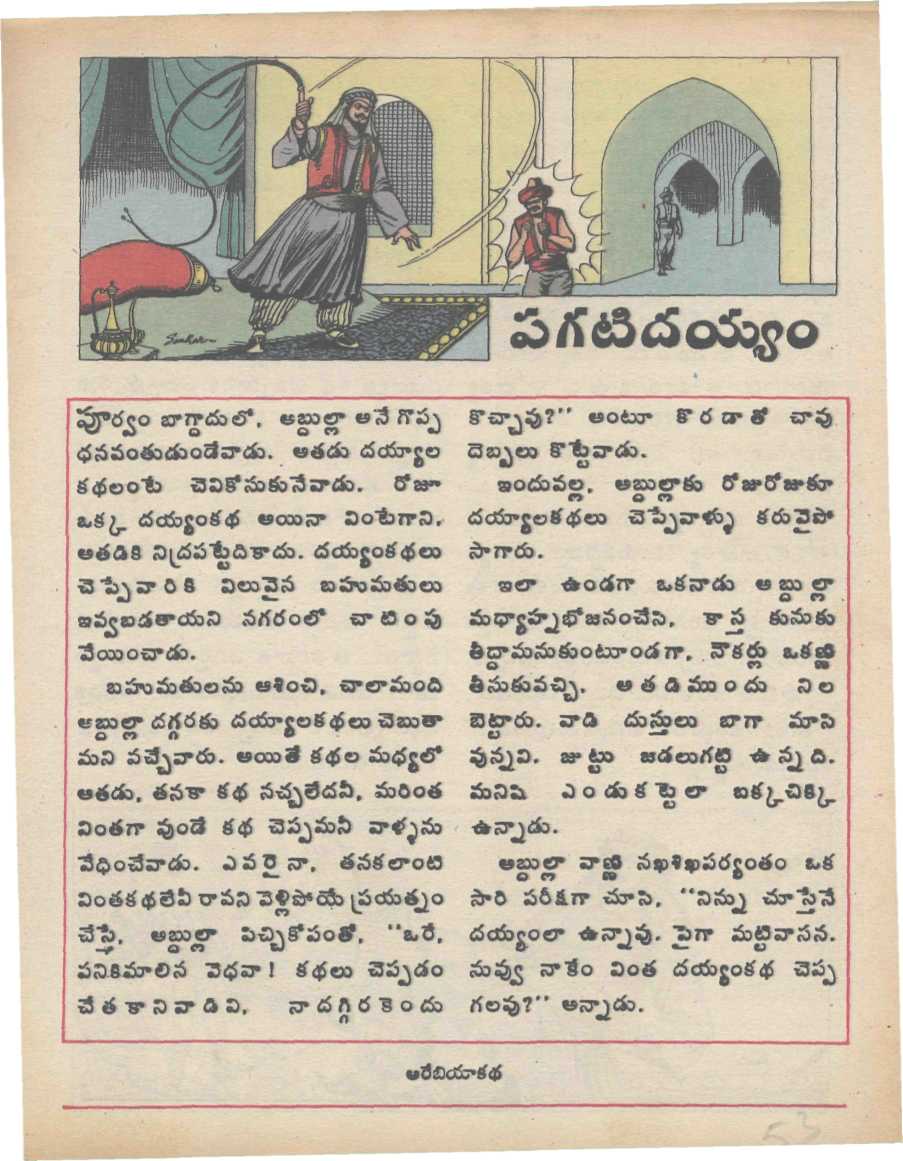 Sankar
పగటిదయ్యం
పూర్వం బాగ్దాదులో, అబ్దుల్లా అనే గొప్ప
ధనవంతుడుండేవాడు. అతడు దయ్యాల
కథలంటే చెవికోసుకునేవాడు. రోజూ
ఒక్క దయ్యంకథ అయినా వింటేగాని,
అతడికి నిద్రపట్టేదికాదు. దయ్యంకథలు
చెప్పేవారికి విలువైన బహుమతులు
ఇవ్వబడతాయని నగరంలో చాటింపు
వేయించాడు.
బహుమతులను ఆశించి, చాలామంది
అబ్దుల్లా దగ్గరకు దయ్యాలకథలు చెబుతా
మని వచ్చేవారు. అయితే కథల మధ్యలో
ఆతడు, తనకా కథ నచ్చలేదనీ, మరింత
వింతగా వుండే కథ చెప్పమనీ వాళ్ళను
వేధించేవాడు. ఎవరైనా, తనకలాంటి
వింతకథలేవీ రావని వెళ్లిపోయే ప్రయత్నం
చేస్తే, అబ్దుల్లా పిచ్చికోపంతో, ‘‘ఒరే,
పనికిమాలిన వెధవా! కథలు చెప్పడం
చేతకానివాడివి, నాదగ్గిరకెందు
కొచ్చావు?’’ అంటూ కొరడాతో చావు
దెబ్బలు కొట్టేవాడు.
ఇందువల్ల, అబ్దుల్లాకు రోజురోజుకూ
దయ్యాలకథలు చెప్పేవాళ్ళు కరువైపో
సాగారు.
ఇలా ఉండగా ఒకనాడు అబ్దుల్లా
మధ్యాహ్నభోజనంచేసి, కాస్త కునుకు
తీద్దామనుకుంటూండగా, నౌకర్లు ఒకణ్ణి
తీసుకువచ్చి, అతడిముందు నిల
బెట్టారు. వాడి దుస్తులు బాగా మాసి
వున్నవి. జుట్టు జడలుగట్టి ఉన్నది.
మనిషి ఎండుకట్టెలా బక్కచిక్కి
ఉన్నాడు.
అబ్దుల్లా వాణ్ణి నఖశిఖపర్యంతం ఒక
సారి పరీక్షగా చూసి, ‘‘నిన్ను చూస్తేనే
దయ్యంలా ఉన్నావు. పైగా మట్టివాసన.
నువ్వు నాకేం వింత దయ్యంకథ చెప్ప
గలవు?’’ అన్నాడు.
అరేబియాకథ
53